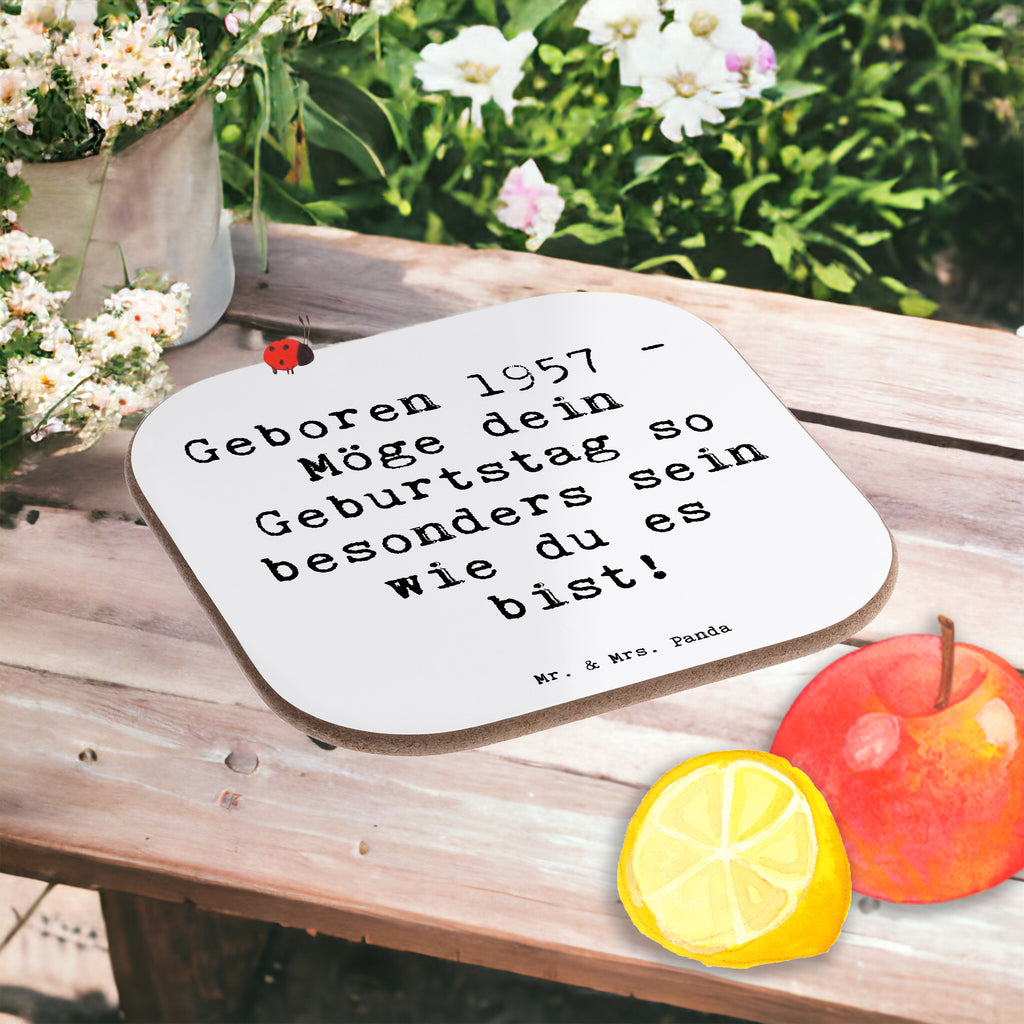 Geboren 1957 -
Möge dein
Geburtstag so
besonders sein
wie du es
bist!
Mr. & Mrs. Panda